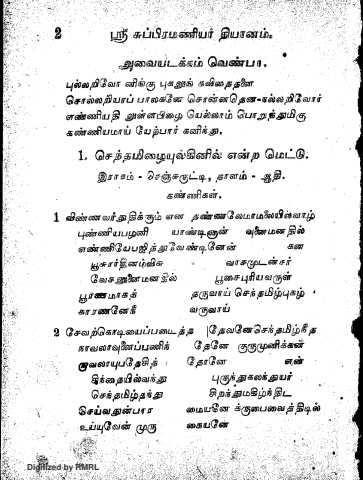 2 ஸ்ரீ சுப்பிரமணியர் தியானம்.
அவையடக்கம் வெண்பா.
புல்லறிவோ னிங்கு புகலுங் கவிதைதனை
சொல்லறியாப் பாலகனே சொன்னதென-நல்லறிவோர்
எண்ணியதி லுள்ளபிழை யெல்லாம் பொறுத்துமிகு
கண்ணியமாய் யேற்பார் கனிந்து.
1. செந்தமிழையுல்கினில் என்ற மெட்டு.
இராகம் - செஞ்சுருட்டி, தாளம் - ஆதி.
கண்ணிகள்.
1 விண்ணவர்துதிக்கும் என தண்ணலேமாமலையில்வாழ்
புண்ணியபழனி யாண்டிஞன் வுனைமனதில்
எண்ணியேபஜித்துவேண்டினேன் கன
பூசுரர்தினம்விசு வாசமுடன்சர்
வேசனுனைமனதில் பூசைபுரியவருள்
பூரணமாகத் தருவாய் செந்தமிழ்புகழ்
காரணனேநீ வருவாய்
2 சேவற்கொடியைப்படைத்த தேவனேசெந்தமிழ்கீத
நாவலாவுனைப்பணிக் தேனே குருமுனிக்கன்
றாவலாயுபதேசித் தோனே என்
சிந்தையில்வந்து புகுந்துகலந்துயர்
செந்தமிழ்தந்து சிறந்துமகிழ்ந்திட
செய்வதுன்பார மையனே க்ருபைவைத்திடில்
உய்யுவேன் முரு கையனே
Digitized by RMRL